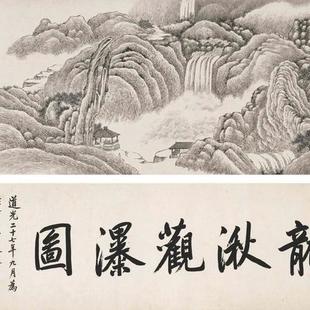 龍湫觀瀑圖
道光二十七年九月為